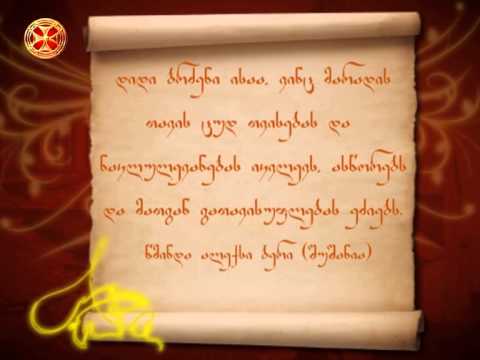 დიდი ბრძენი ისაა, ვინც მარადის
თავის ცუდ თვისებას და
ნაკლულევანებას იკვლევს, ასწორებს
და მათგან გათავისუფლებას ეძიებს.
წმინდა ალექსი ბერი (შუშანია)